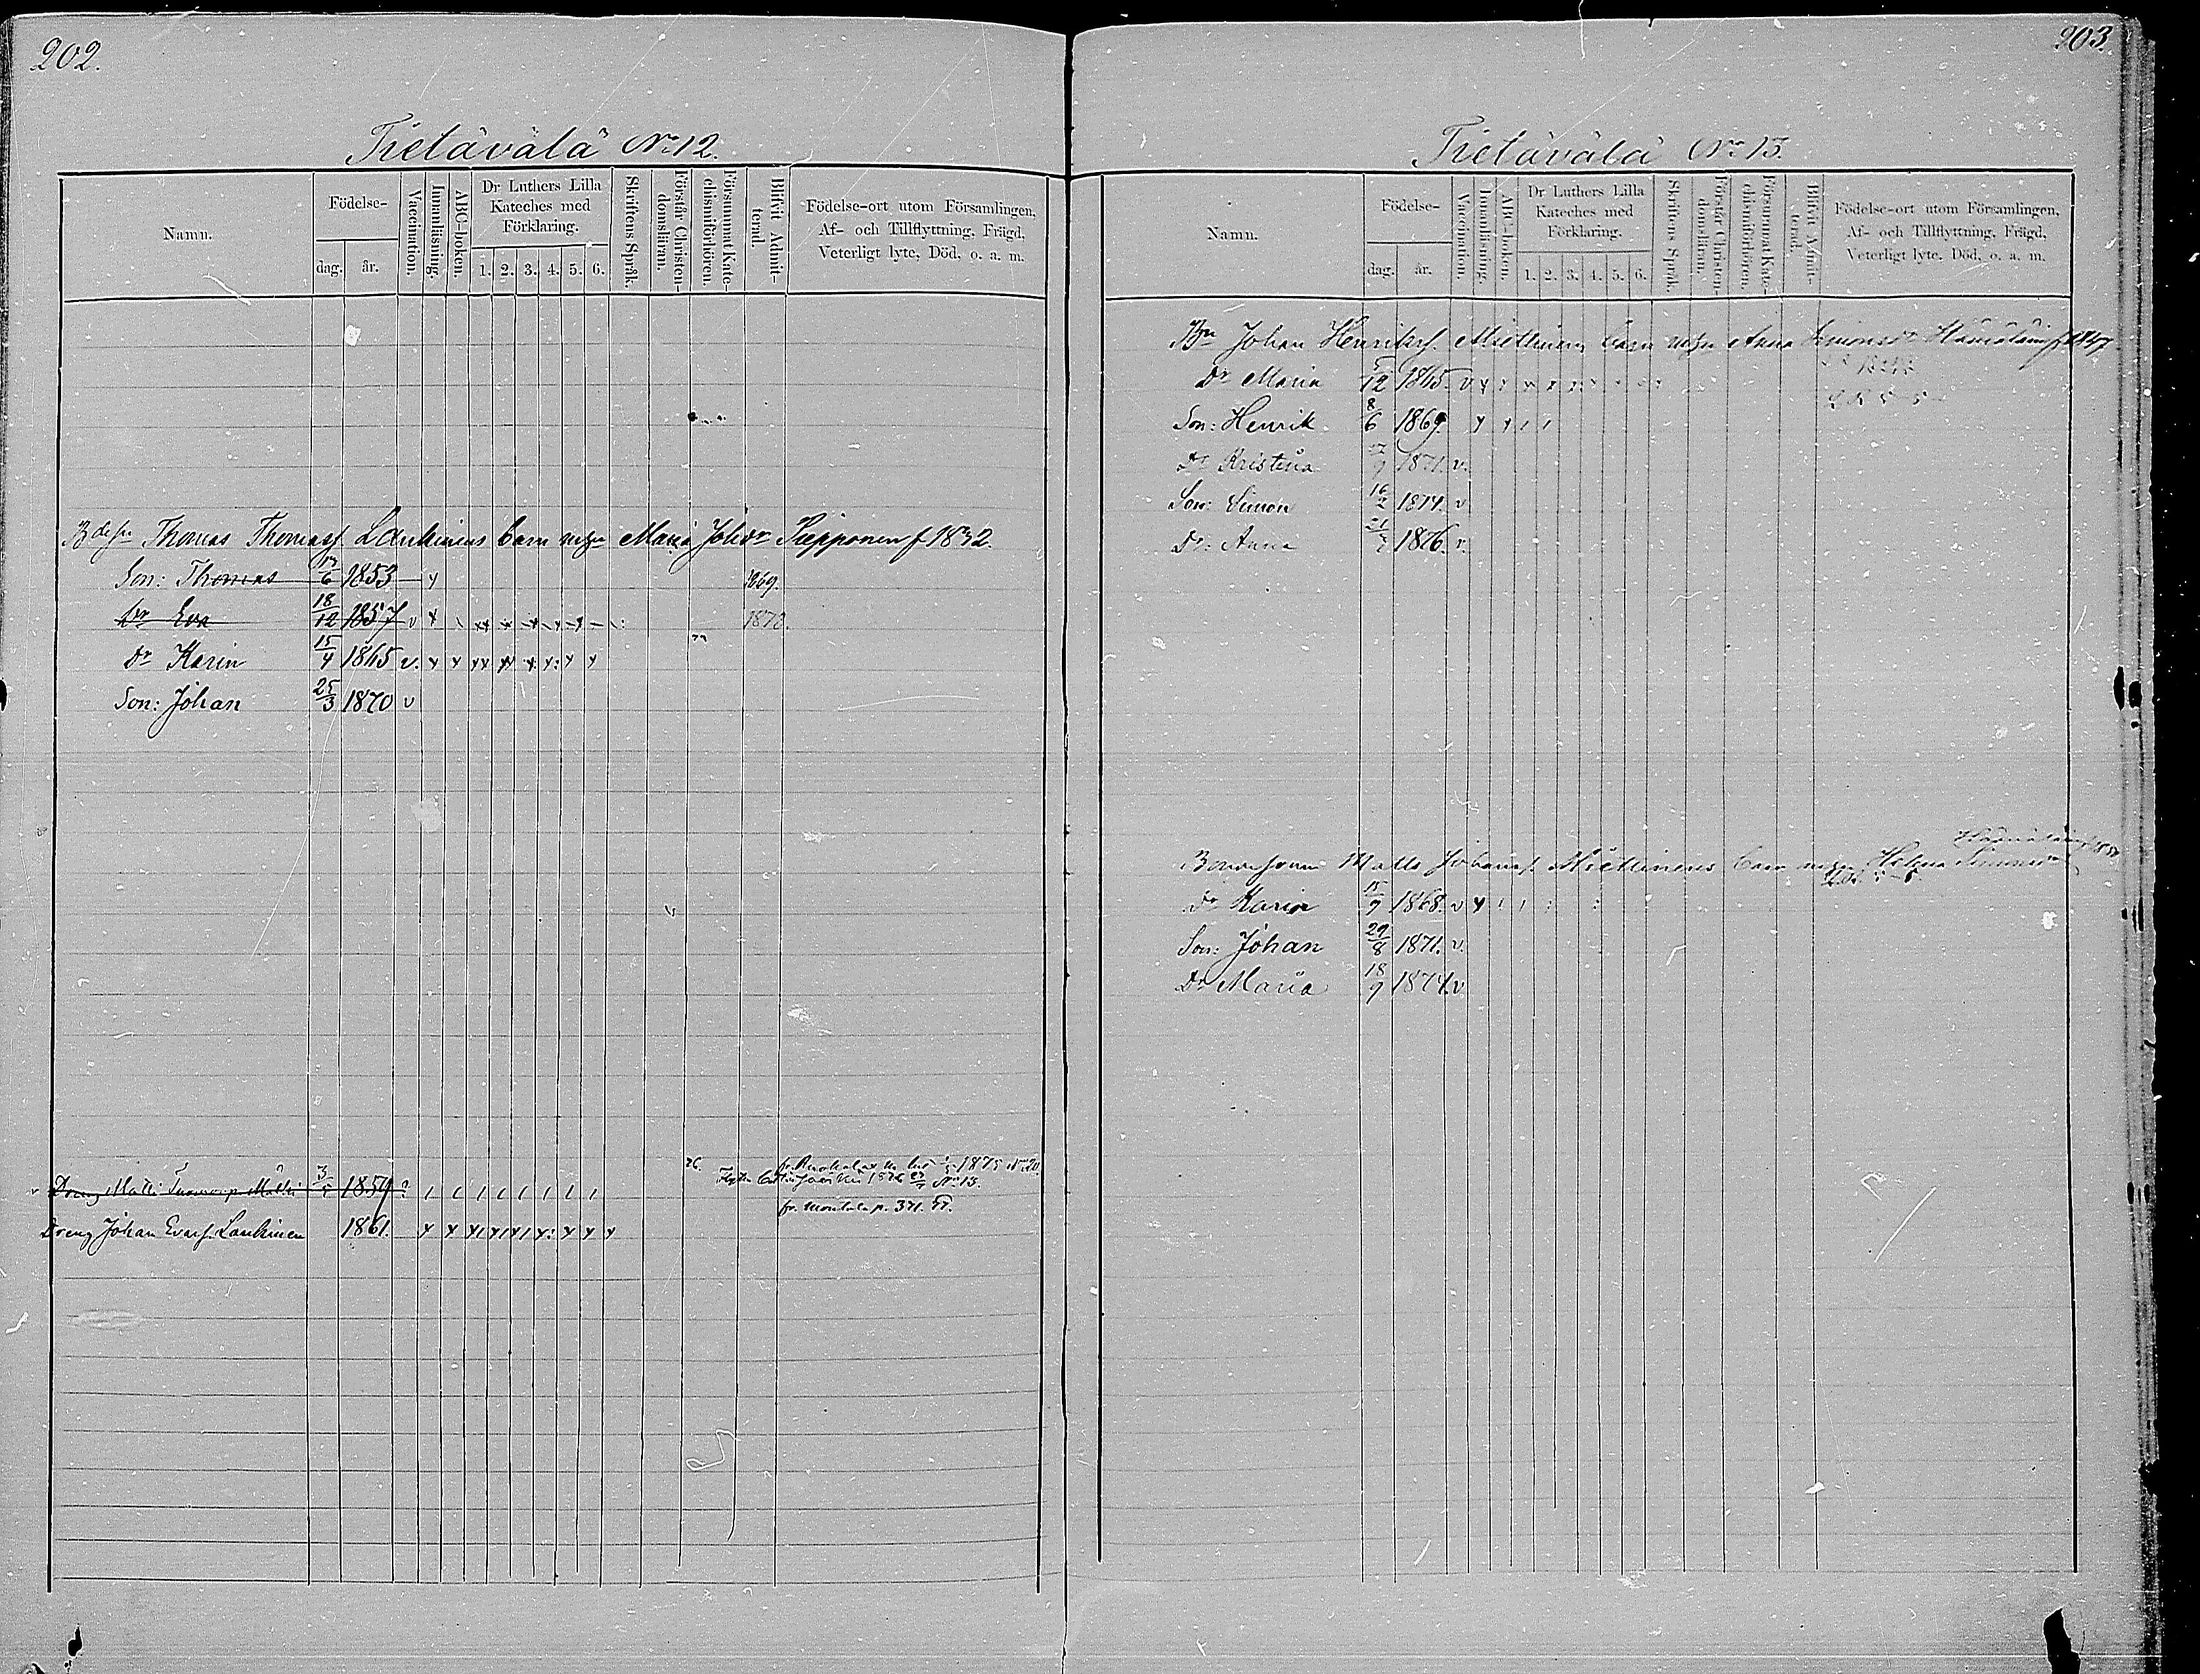 202.
Tietävälä No 12.
Namn.
Födelse-
dag.
år.
Vaccination.
Innanläsning.
ABC-boken.
Dr Luthers Lilla
Kateches med
Förklaring.
1. 2. 3. 4. 5. 6.
Skriftens Språk.
Förstår Christen-
domsläran.
Försummat Kate-
chismiförhören.
Blifvit Admit-
terad.
Födelse-ort utom Församlingen,
Af- och Tillflyttning, Frägd,
Veterligt lyte, Död, o. a. m.
Thomas Thomasf. Laukinens barn m. Maria Johdr Piepponen f 1832.
Son: Thomas 6 1853 1869.
Dr Eva 18/12 1857 v
Dr Karin 15/4 1865 v.
Son: Johan 25/3 1870 v
Dreng Matts
fr. Ruokolax 1875
1876 No 13.
fr. p. 371.
Dreng Johan Evaf. Laukinen 1861.
203
Tietävälä No 13.
Namn.
Födelse-
dag.
år.
Vaccination.
Innanläsning.
ABC-boken.
Dr Luthers Lilla
Kateches med
Förklaring.
1. 2. 3. 4. 5. 6.
Skriftens Språk.
Förstår Christen-
domsläran.
Försummat Kate-
chismiförhören.
Blifvit Admit-
terad.
Födelse-ort utom Församlingen,
Af- och Tillflyttning, Frägd,
Veterligt lyte, Död, o. a. m.
Johan Henriksf. Miettinens barn Anna Simonsdr Hämäläin f 1847
Dr Maria 5/12 1865. v
Son: Henrik 8/6 1869.
Dr Kristina 1871. v.
Son: Simon 16/2 1874. v
Dr: Anna 1876. v.
Matts Johansf. Miettinens barn Helena Simonsdr
Dr Karin 15/9 1868. v
Son: Johan 29/8 1871. v
Dr Maria 18/9 1874. v